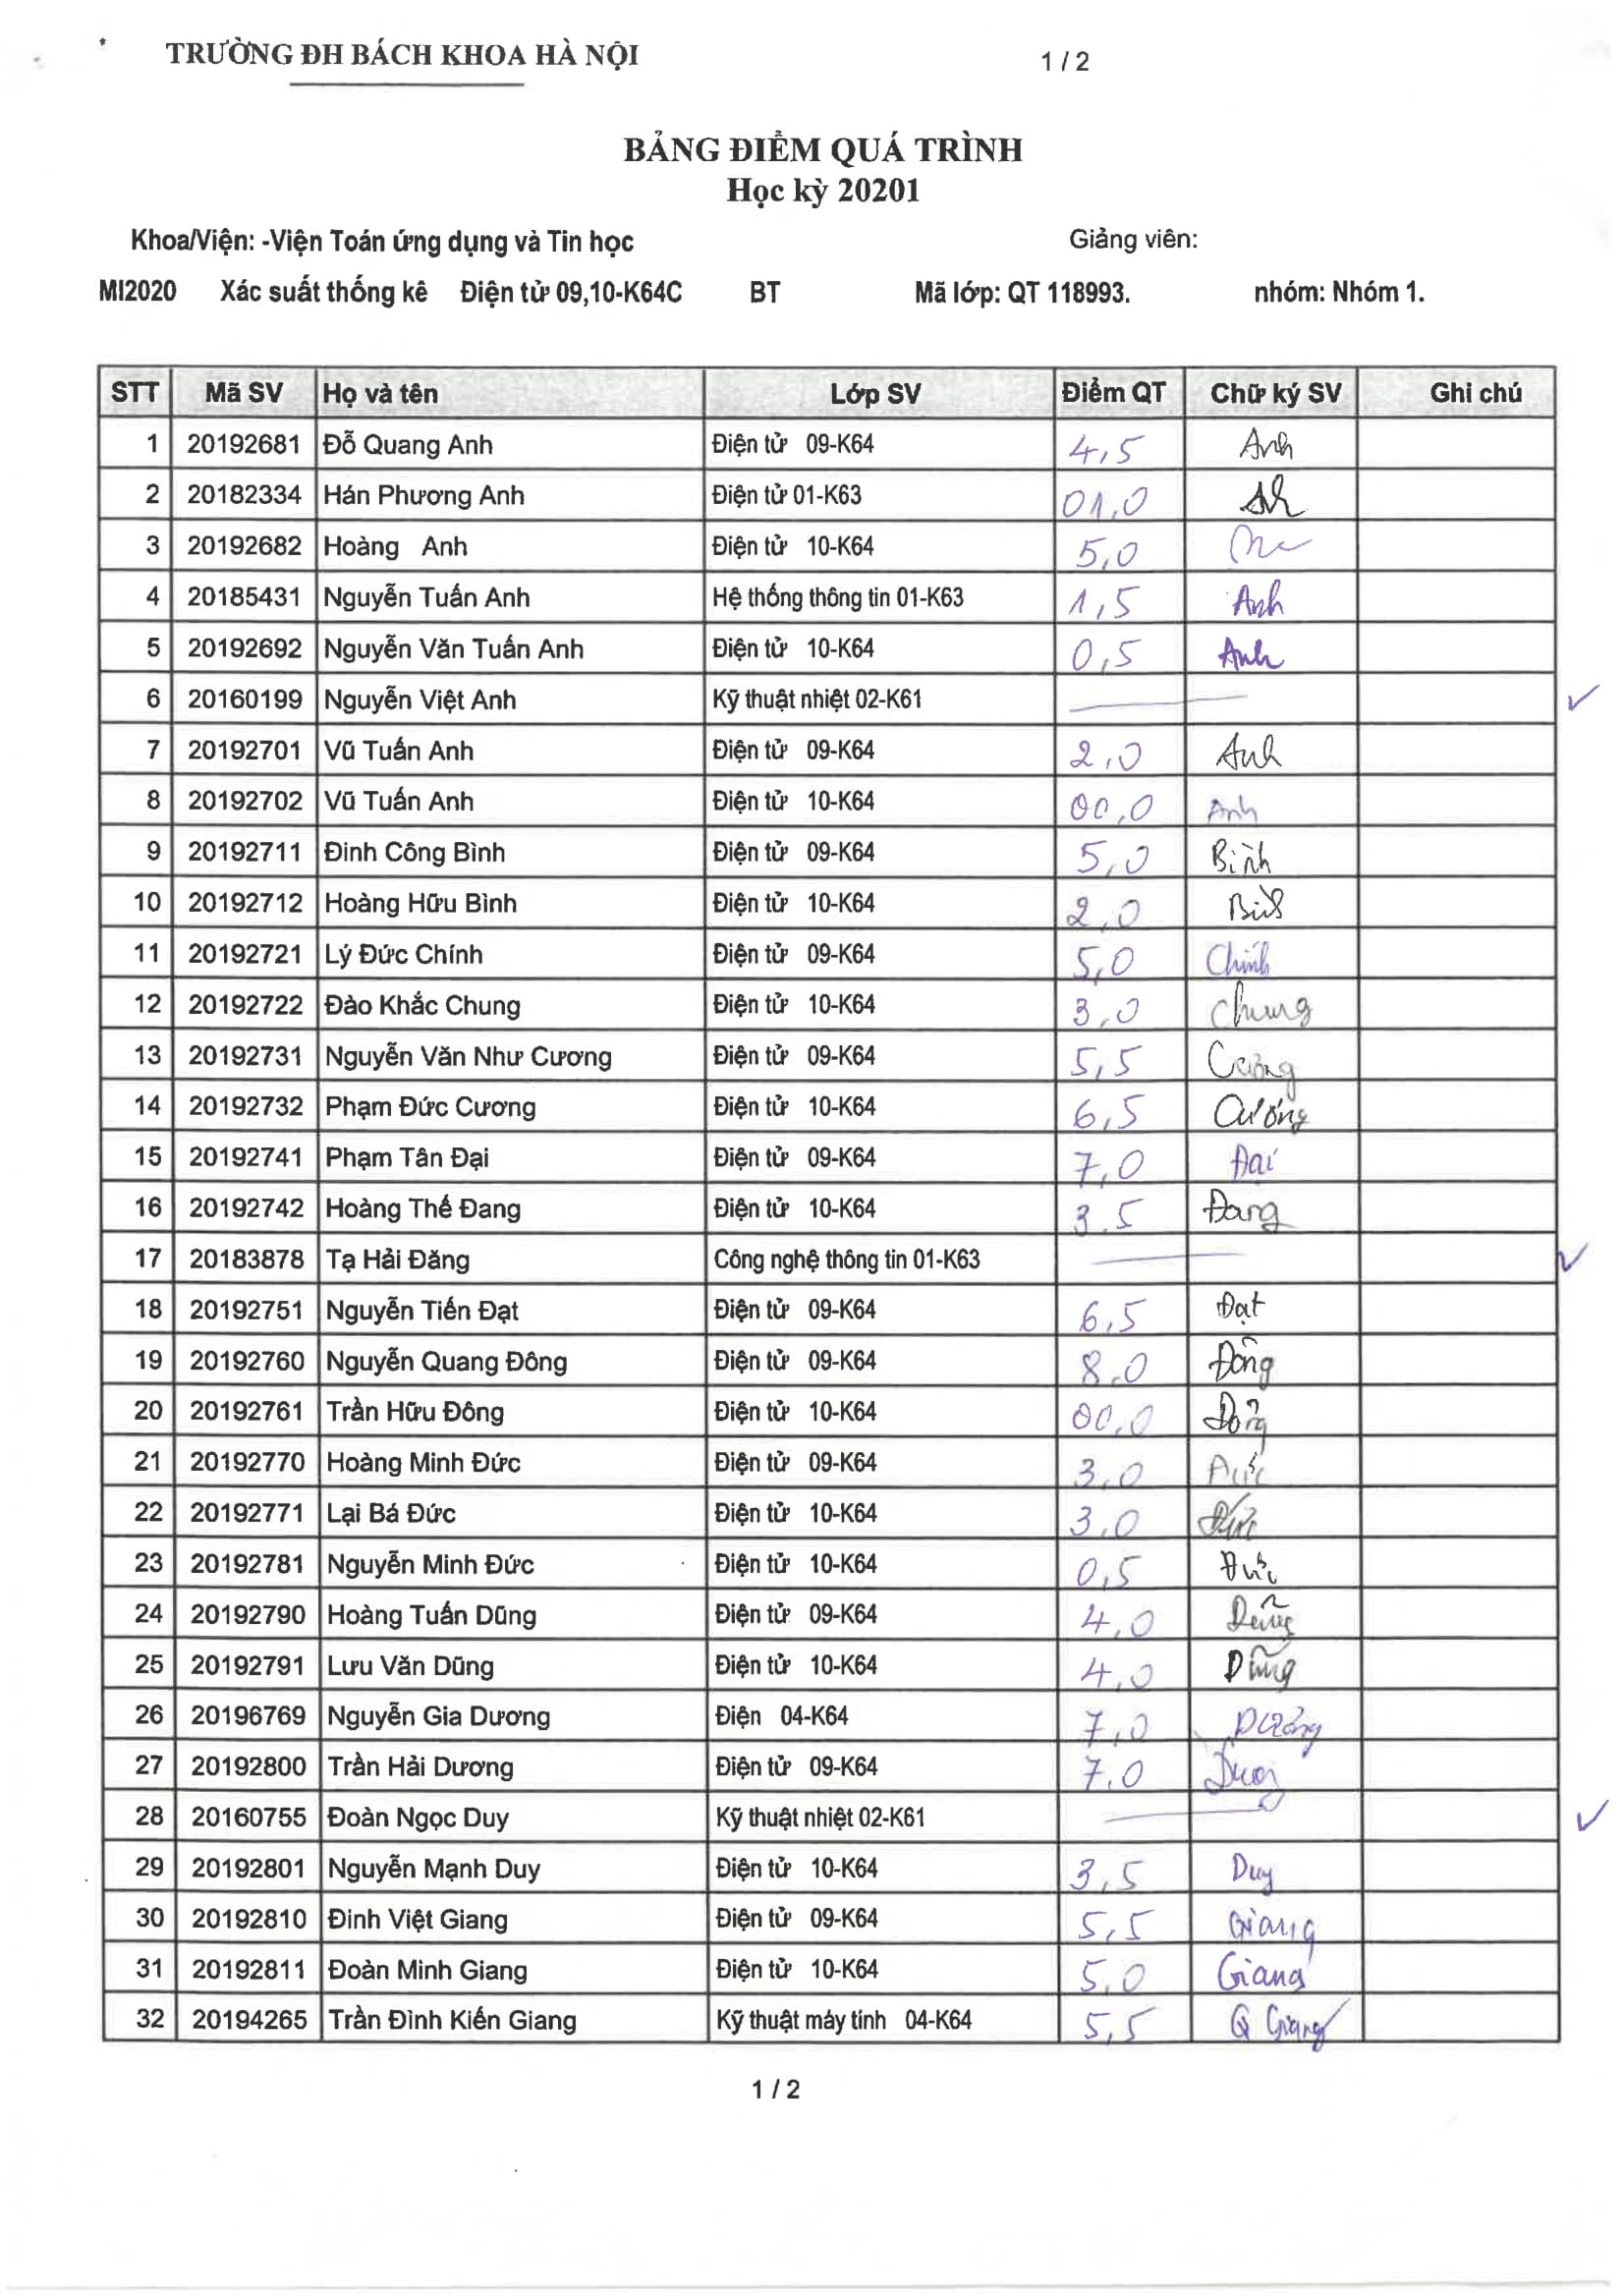 TRƯỜNG ĐH BÁCH KHOA HÀ NỘI 1 / 2
BẢNG ĐIỂM QUÁ TRÌNH
Học kỳ 20201
Khoa/Viện: -Viện Toán ứng dụng và Tin học Giảng viên:
MI2020 Xác suất thống kê Điện tử 09,10-K64C BT Mã lớp: QT 118993. nhóm: Nhóm 1.
STT Mã SV Họ và tên Lớp SV Điểm QT Chữ ký SV Ghi chú
1 20192681 Đỗ Quang Anh Điện tử 09-K64 4,5 Anh
2 20182334 Hán Phương Anh Điện tử 01-K63 01,0
3 20192682 Hoàng Anh Điện tử 10-K64 5,0
4 20185431 Nguyễn Tuấn Anh Hệ thống thông tin 01-K63 1,5 Anh
5 20192692 Nguyễn Văn Tuấn Anh Điện tử 10-K64 0,5 Anh
6 20160199 Nguyễn Việt Anh Kỹ thuật nhiệt 02-K61
7 20192701 Vũ Tuấn Anh Điện tử 09-K64 2,0 Anh
8 20192702 Vũ Tuấn Anh Điện tử 10-K64 00,0 Anh
9 20192711 Đinh Công Bình Điện tử 09-K64 5,0 Bình
10 20192712 Hoàng Hữu Bình Điện tử 10-K64 2,0
11 20192721 Lý Đức Chính Điện tử 09-K64 5,0 Chính
12 20192722 Đào Khắc Chung Điện tử 10-K64 3,0 Chung
13 20192731 Nguyễn Văn Như Cương Điện tử 09-K64 5,5 Cương
14 20192732 Phạm Đức Cương Điện tử 10-K64 6,5 Cương
15 20192741 Phạm Tân Đại Điện tử 09-K64 7,0 Đại
16 20192742 Hoàng Thế Đang Điện tử 10-K64 3.5 Đang
17 20183878 Tạ Hải Đăng Công nghệ thông tin 01-K63
18 20192751 Nguyễn Tiến Đạt Điện tử 09-K64 6,5 Đạt
19 20192760 Nguyễn Quang Đông Điện tử 09-K64 8.0 Đông
20 20192761 Trần Hữu Đông Điện tử 10-K64 00,0 Đông
21 20192770 Hoàng Minh Đức Điện tử 09-K64 3,0 Đức
22 20192771 Lại Bá Đức Điện tử 10-K64 3,0 Đức
23 20192781 Nguyễn Minh Đức Điện tử 10-K64 0,5 Đức
24 20192790 Hoàng Tuấn Dũng Điện tử 09-K64 4,0 Dũng
25 20192791 Lưu Văn Dũng Điện tử 10-K64 4,0 Dũng
26 20196769 Nguyễn Gia Dương Điện 04-K64 7,0 Dương
27 20192800 Trần Hải Dương Điện tử 09-K64 7,0
28 20160755 Đoàn Ngọc Duy Kỹ thuật nhiệt 02-K61
29 20192801 Nguyễn Mạnh Duy Điện tử 10-K64 3,5 Duy
30 20192810 Đinh Việt Giang Điện tử 09-K64 5,5 Giang
31 20192811 Đoàn Minh Giang Điện tử 10-K64 5,0 Giang
32 20194265 Trần Đình Kiến Giang Kỹ thuật máy tính 04-K64 5,5 Giang
1 / 2